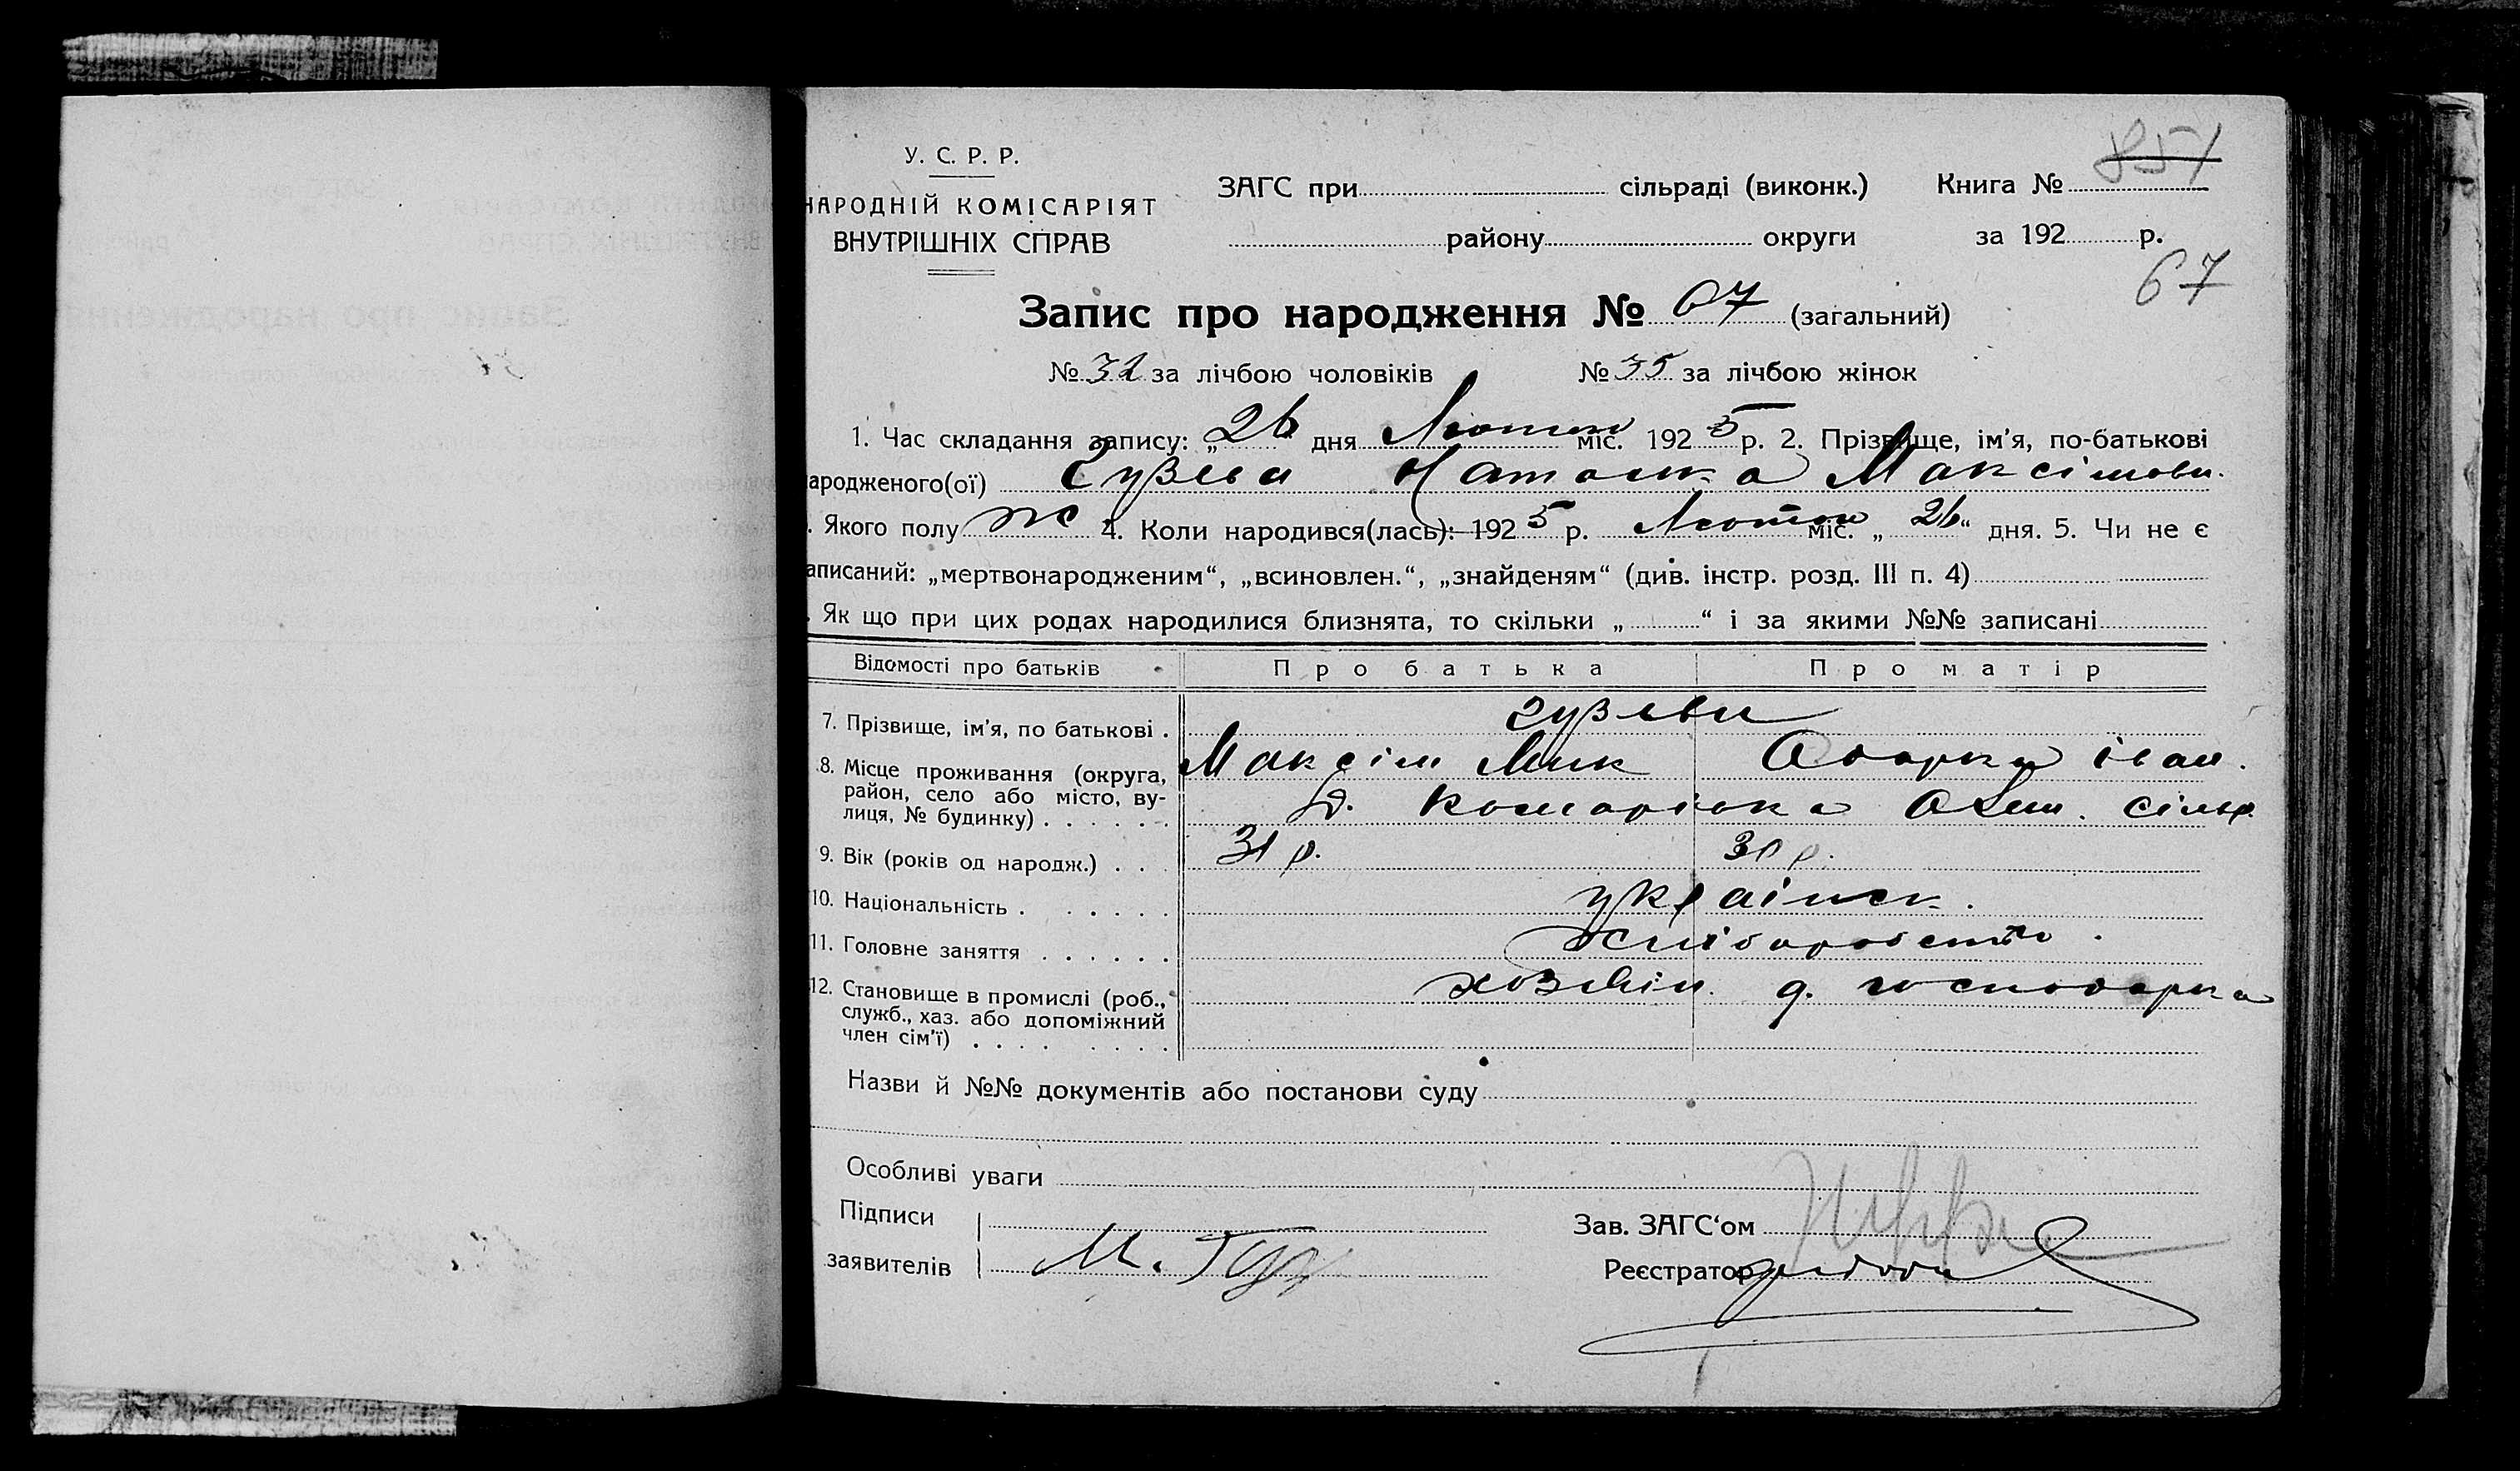 851
У. С. Р. Р.
ЗАГС при сільраді (виконк.) Книга №
НАРОДНІЙ КОМІСАРІЯТ
ВНУТРІШНІХ СПРАВ
району округи за 192 р.
67
Запис про народження № 67 (загальний)
№ 32 за лічбою чоловіків № 35 за лічбою жінок
1. Час складання запису: „26" дня Лютого міс. 1925 р. 2. Прізвище, ім'я, по-батькові
ародженого(ої) Наталка Максімовн.
. Якого полу ж 4. Коли народився(лась): 1925 р. Лютого міс. „26“ дня. 5. Чи не є
аписаний: „мертвонародженим“, „всиновлен.“, „знайденям“ (див. інстр. розд. III п. 4)
. Як що при цих родах народилися близнята, то скільки „ “ і за якими №№ записані
Відомості про батьків Про батька Про матір
7. Прізвище, ім'я, по батькові .
8. Місце проживання (округа, район, село або місто, вулиця, № будинку) . . . . . .
Максім Мик Одарка Іван.
9. Вік (років од народж.) . . . 31 р. 30 р.
10. Національність . . . . . . українск.
11. Головне заняття . . . . . . хліборобство .
12. Становище в промислі (роб., служб., хаз. або допоміжний член сім'ї) . . . . . . . .
хозяїн. д. господарка
Назви й №№ документів або постанови суду
Особливі уваги
Підписи
Зав. ЗАГС'ом
заявителів М.
Реєстратор